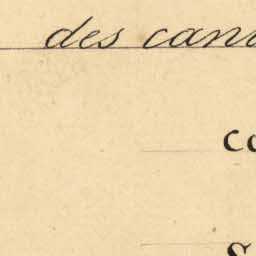 des can
co
S